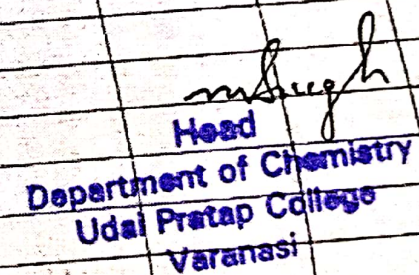 mSingh
Head
Department of Chemistry
Udai Pratap College
Varanasi